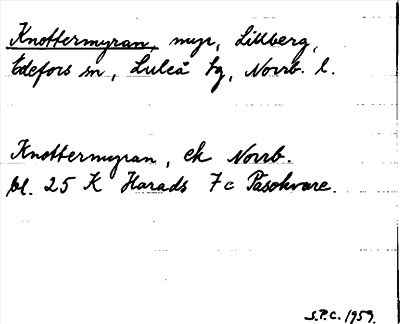 Knottermyran, myr, Lillberg,
Edefors sn, Luleå tg, Norrb. l.
Knottermyran, ek Norrb.
bl. 25 K Harads 7 c Pasokvare.
S.P.C. 1959.